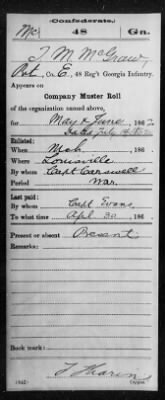 (Confederate.)
Mc 48 Ga.
T. M. McGraw,
Pvt, Co. E, 48 Reg't Georgia Infantry.
Appears on
Company Muster Roll
of the organization named above,
for May & June, 1862
Dated July
Enlisted:
When Mch, 186
Where Louisville
By whom Capt Carswell
Period War.
Last paid:
By whom Capt Evans,
To what time Apl 30, 186
Present or absent Present
Remarks:
Book mark:
Copyist.